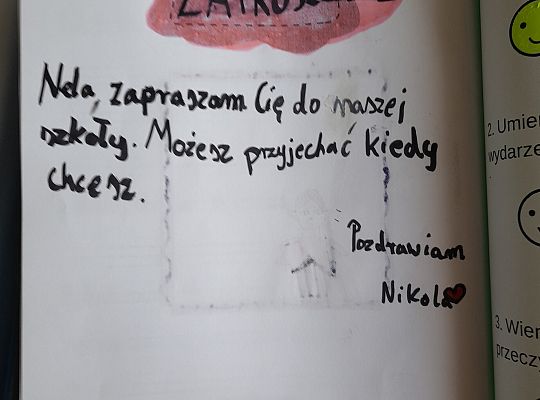 Nela, zapraszam Cię do naszej
szkoły. Możesz przyjechać kiedy
chcesz.
Pozdrawiam
Nikola
2. Umie
wydarze
3. Wier
przeczy